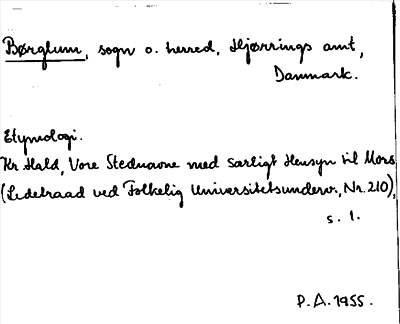 Børglum, sogn o. herred, Hjørrings amt,
Danmark.
Etymologi.
Kr. Hald, Vore Stednavne med særligt Hensyn til Mors
(Ledetraad ved Folkelig Universitetsunderv., Nr. 210),
s. 1.
P.A. 1955.